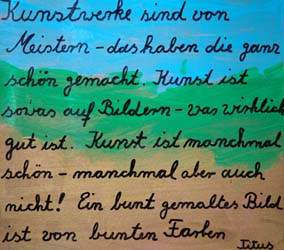 Kunstwerke sind von
Meistern – das haben die ganz
schön gemacht. Kunst ist
sowas auf Bildern – was wirklich
gut ist. Kunst ist manchmal
schön – manchmal aber auch
nicht! Ein bunt gemaltes Bild
ist von bunten Farben
Titus